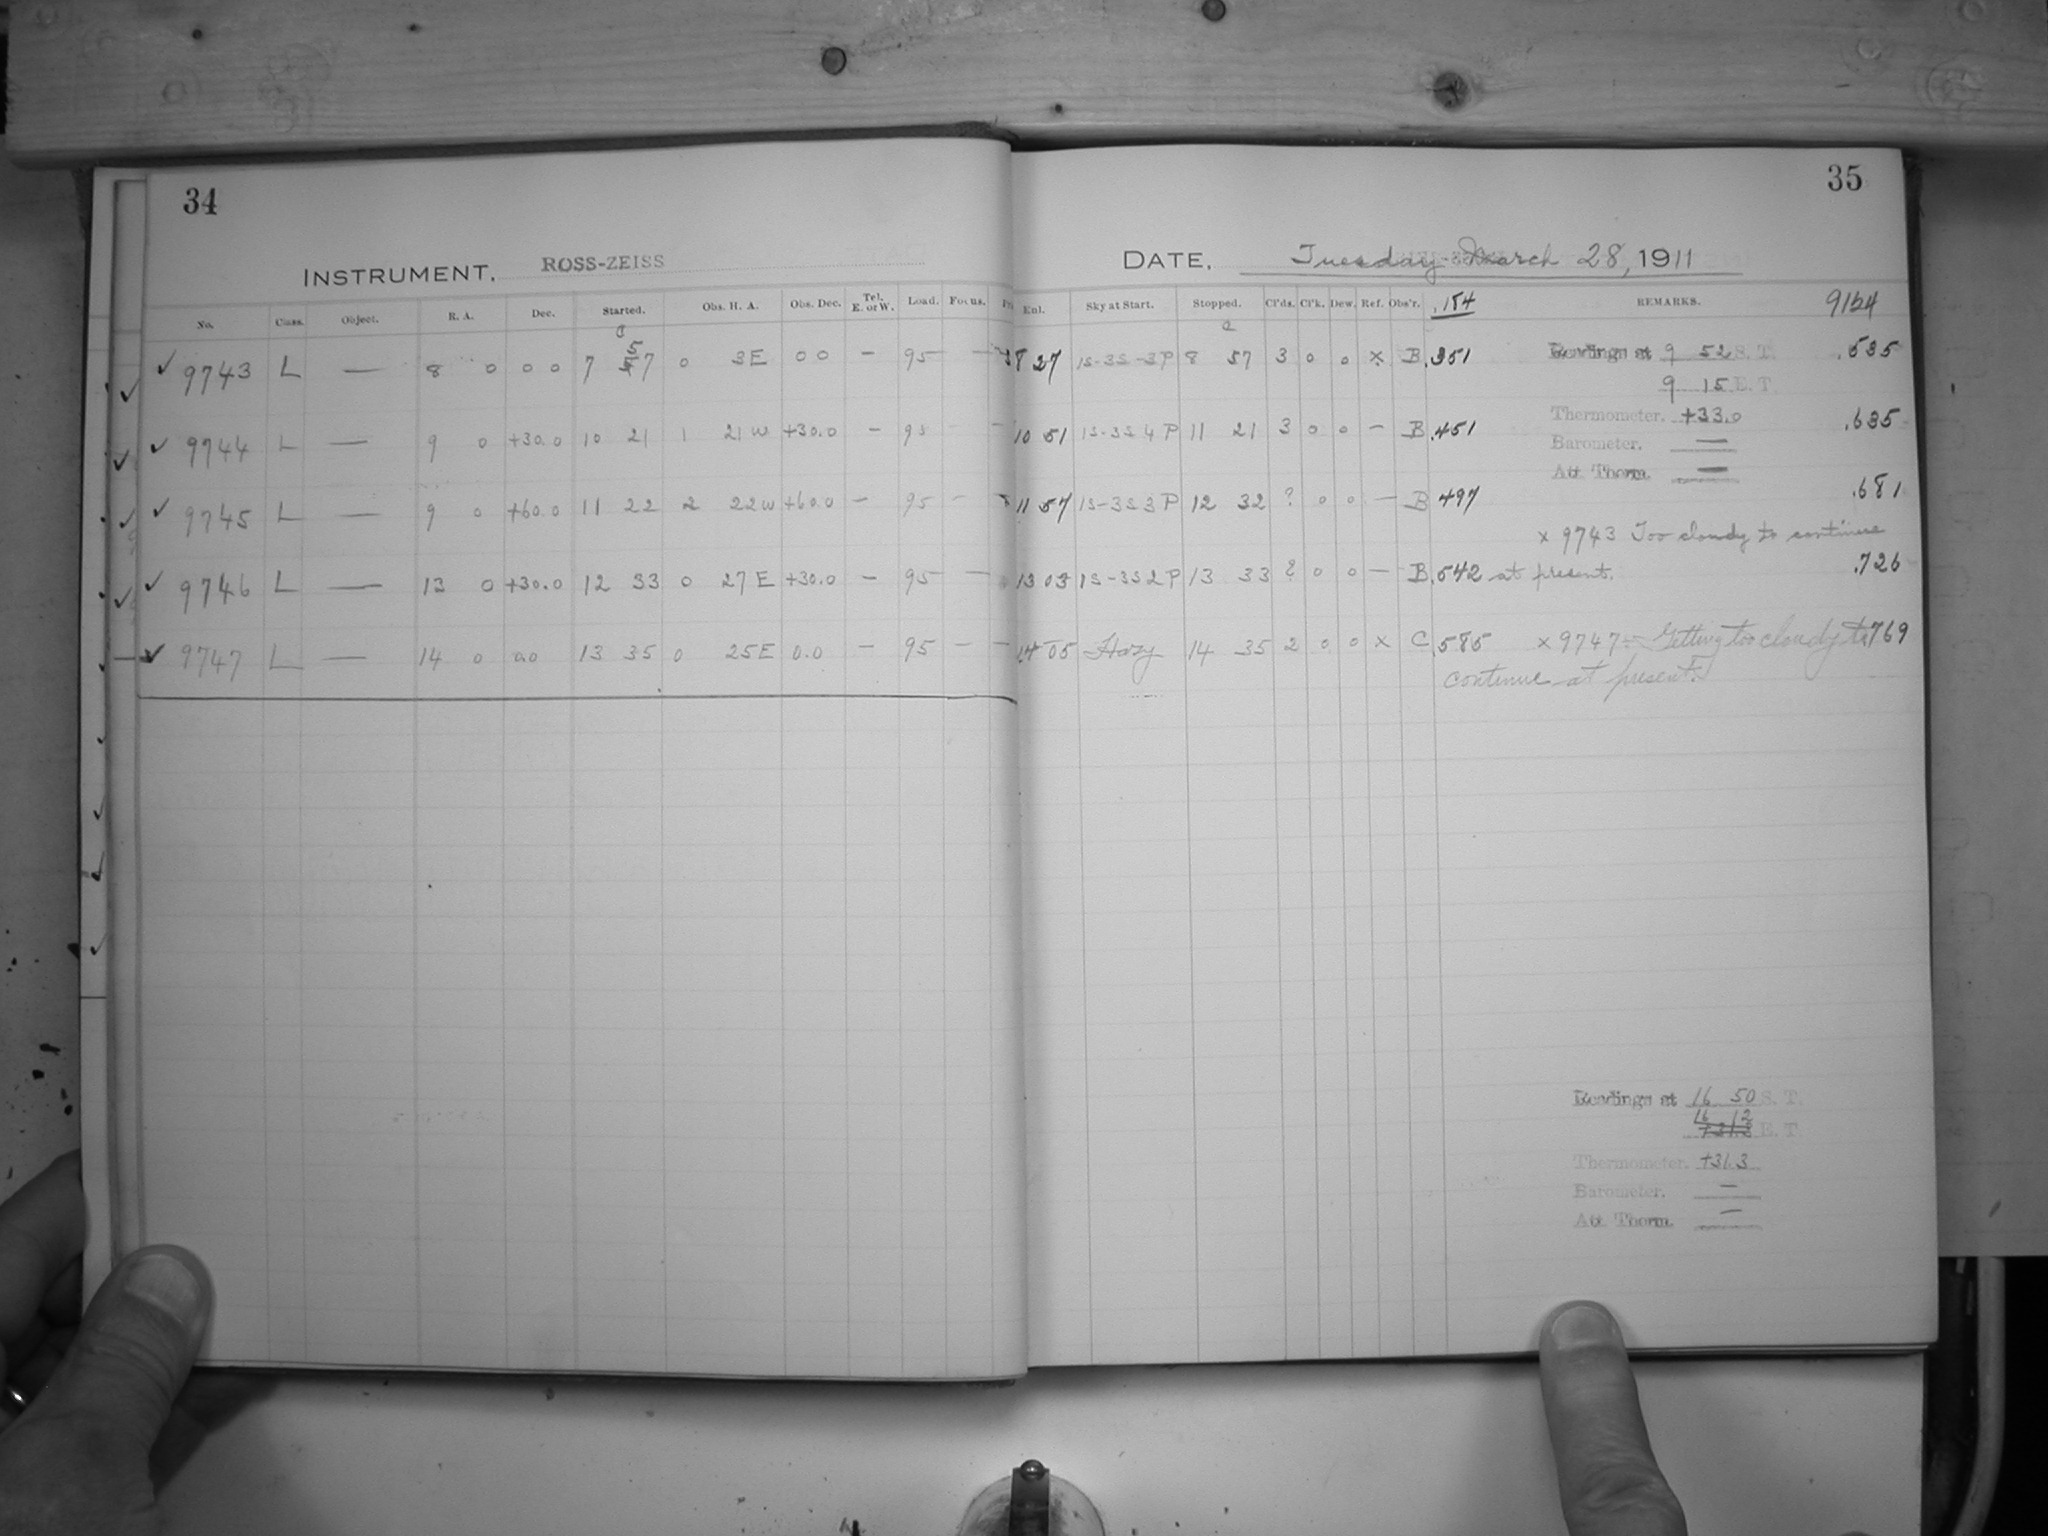 34
INSTRUMENT. ROSS-ZEISS
No. Class. Object. R. A. Dec. Started. Obs. H. A. Obs. Dec. Tel. E. or W. Load. Focus.
✓ 9743 L — 8 0 0 0 7 57 0 3E 0 0 — 95 —
✓ 9744 L — 9 0 +30.0 10 21 1 21W +30.0 — 95 —
✓ 9745 L — 9 0 +60.0 11 22 2 22W +60.0 — 95 —
✓ 9746 L — 13 0 +30.0 12 33 0 27E +30.0 — 95 —
✓ 9747 L — 14 0 0.0 13 35 0 25E 0.0 — 95 —
35
DATE. Tuesday March 28, 1911
Enl. Sky at Start. Stopped. Cl'ds. Cl'k. Dew. Ref. Obs'r. .154 REMARKS. 9124
8 27 1S-3S-3P 8 57 3 0 0 x B .351 Readings at 9 52 S. T. .535
9 15 E. T.
Thermometer. +33.0
10 51 1S-3S 4P 11 21 3 0 0 — B .451 .635
Barometer. —
Att Therm. —
11 57 1S-3S 3P 12 32 ? 0 0 — B .497 .681
x 9743 Too cloudy to continue
13 03 1S-3S 2P 13 33 ? 0 0 — B .542 at present. .726
14 05 Hazy 14 35 2 0 0 x C .585 x 9747:- Getting too cloudy to .769
continue at present.
Readings at 16 50 S. T.
16 12 E. T.
Thermometer. +31.3
Barometer. —
Att Therm. —